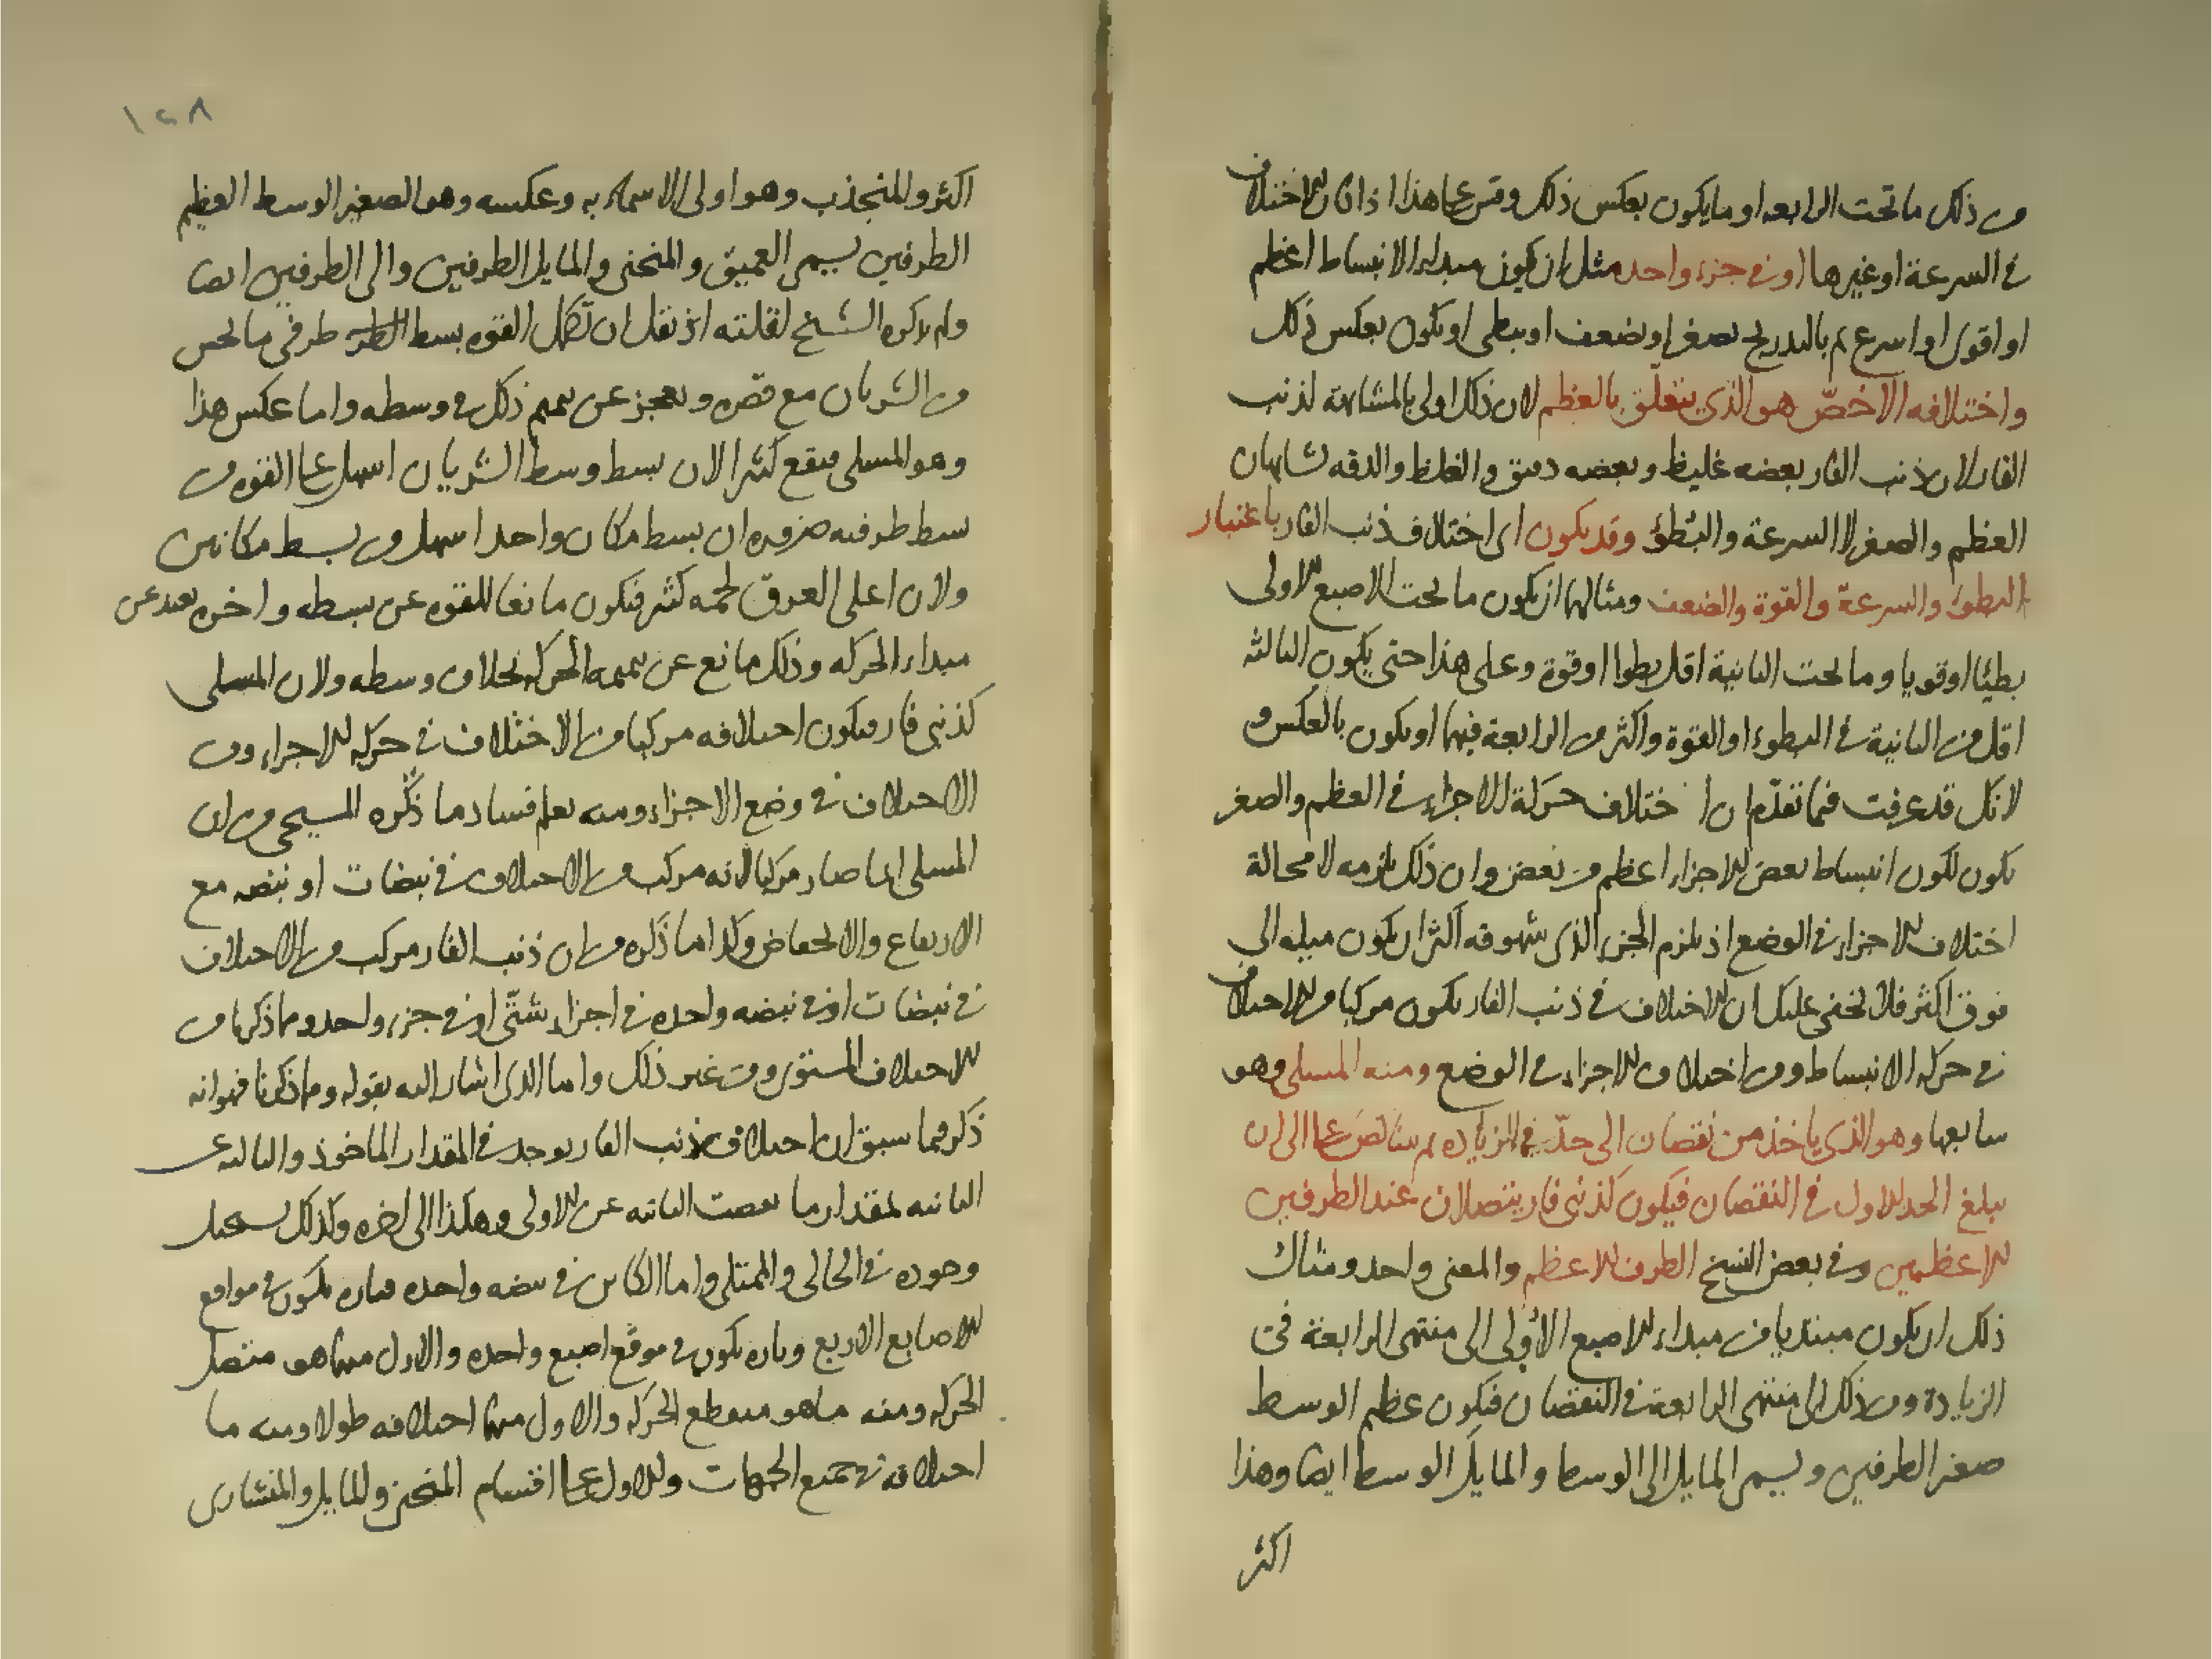 من ذلك ما تحت الرابعه او ما يكون بعكس ذلك وقس على هذا اذا كان الاختلاف
في السرعة او غيرها او في جزء واحد مثل ان يكون مبداء الانبساط اعظم
او اقوى او اسرع ثم بالتدريج يصغر او يضعف او يبطى او يكون بعكس ذلك
واختلافه الاخصّ هو الذي يتعلّق بالعظم لان ذلك اولى بالمشابهة لذنب
الفار لان ذنب الفار بعضه غليظ وبعضه دقيق والغلظ والدقه تشابهان
العظم والصغر لا السرعة والبُطؤ وقد يكون اى اختلاف ذنب الفار باعتبار
البطؤ والسرعة والقوة والضعف ومثالها ان يكون ما تحت الاصبع الاولى
بطيئا او قويا وما تحت الثانية اقل بطوا او قوة وعلى هذا حتى يكون الثالثه
اقل من الثانية في البطوء او القوة واكثر من الرابعة فيهما او يكون بالعكس و
لانك قد عرفت فيما تقدّم ان اختلاف حركة الاجزاء في العظم والصغر
يكون لكون انبساط بعض الاجزاء اعظم من بعض وان ذلك يلزمه لا محالة
اختلاف الاجزاء في الوضع اذ يلزم الجزء الذى شهوقه اكثر ان يكون ميله الى
فوق اكثر فلا يخفى عليك ان الاختلاف في ذنب الفار يكون مركبا من الاختلاف
في حركه الانبساط ومن اختلاف الاجزاء في الوضع ومنه المسلى وهو
سابعها وهو الذى ياخذ من نقصان الى حدّ في الزياده ثم يتناقص على الى ان
يبلغ الحد الاول في النقصان فيكون كذنبى فار يتصلان عند الطرفين
الاعظمين وفي بعض النسخ الطرف الاعظم والمعنى واحد ومثال
ذلك ان يكون مبتديا من مبداء الاصبع الاولى الى منتهى الرابعة في
الزيادة ومن ذلك الى منتهى الرابعة في النقصان فيكون عظم الوسط
صغير الطرفين ويسمى المايل الى الوسط والمايل الوسط ايضا وهذا
اكثر
١٢٨
اكثر والمنجذب وهو اولى الاسماء به وعكسه وهو الصغير الوسط العظيم
الطرفين يسمى العميق والمنحنى والمايل الطرفين والى الطرفين ايضا
ولم يذكره الشيخ لقلته اذ نقل ان تكمل القوه بسط طرفى ما يحس
من الشريان مع قصره ويعجز عن تتميم ذلك في وسطه واما عكس هذا
وهو المسلى فيقع كثيرا لان بسط وسط الشريان اسهل على القوه من
بسط طرفيه ضروره ان بسط مكان واحد اسهل من بسط مكانين
ولان اعلى العرق لحمه كثير فيكون مانعا للقوه عن بسطه واخره بعيد عن
مبداء الحركه وذلك مانع عن تتميمه الحركه بخلاف وسطه ولان المسلى
كذنبى فار فيكون اختلافه مركبا من الاختلاف في حركه الاجزاء ومن
الاختلاف في وضع الاجزاء ومنه يعلم فساد ما ذكره المسيحى من ان
المسلى انما صار مركبا لانه مركب من الاختلاف في نبضات او نبضه مع
الارتفاع والانخفاض وكذا ما ذكره من ان ذنب الفار مركب من الاختلاف
في نبضات او في نبضه واحده في اجزاء شتّى او في جزء واحد ومما ذكرنا من
الاختلاف المستوى ومن غير ذلك واما الذى اشار اليه بقوله ومما ذكرنا فهو انه
ذكر فيما سبق ان اختلاف ذنب الفار يوجد في المقدار الماخوذ والثالثه عن
الثانيه بمقدار ما نقصت الثانيه عن الاولى وهكذا الى اخره وكذلك يستحيل
وجوده في الخالى والممتلى واما الكاين في نبضه واحده فتاره يكون في مواقع
الاصابع الاربع وتاره يكون في موقع اصبع واحده والاول منهما هو متصل
الحركه ومنه ما هو منقطع الحركه والاول منهما اختلافه طولا ومنه ما
اختلافه في جميع الجهات والاول على اقسام المنحنى والمايل والمنشارى